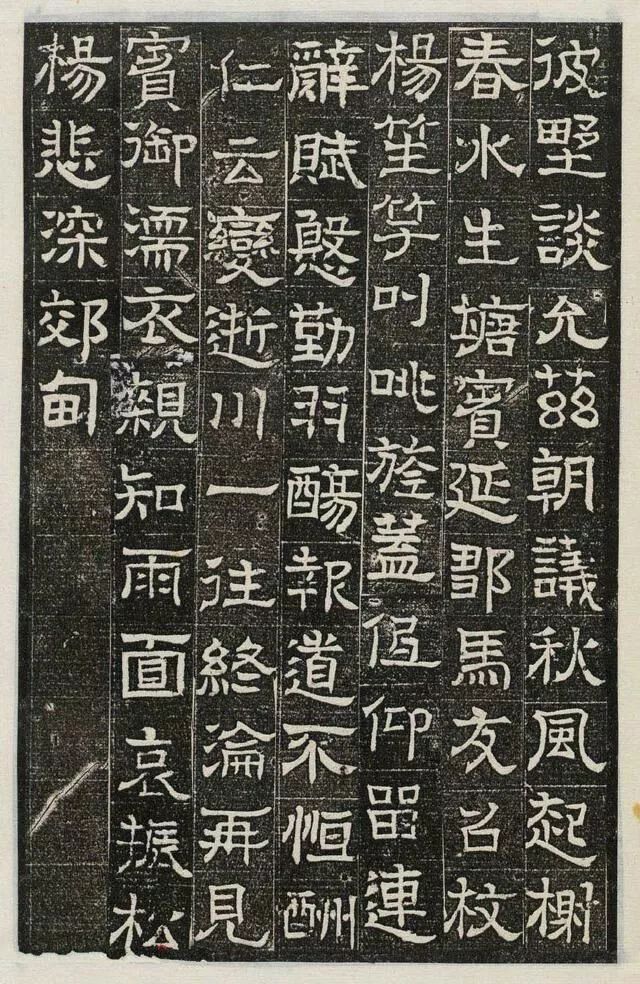 彼墅談允茲朝議秋風起榭
春水生塘賓延鄒馬友召枚
楊笙竽叫咷旌蓋伍仰畱連
辭賦慇勤羽觴報道不恒酬
仁云變逝川一往終淪再見
賓御濡衣親知雨面哀振松
楊悲深郊甸